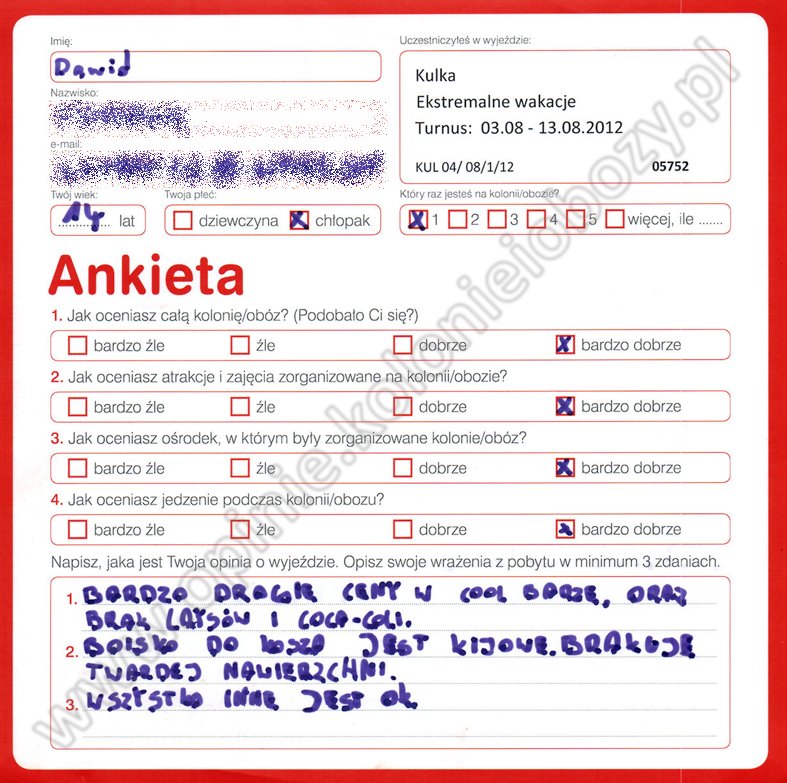 Imię:
Dawid
Nazwisko:
e-mail:
Twój wiek:
14 lat
Twoja płeć:
dziewczyna X chłopak
Uczestniczyłeś w wyjeździe:
Kulka
Ekstremalne wakacje
Turnus: 03.08 - 13.08.2012
KUL 04/ 08/1/12 05752
Który raz jesteś na kolonii/obozie?
X 1 2 3 4 5 więcej, ile .......
Ankieta
1. Jak oceniasz całą kolonię/obóz? (Podobało Ci się?)
bardzo źle źle dobrze X bardzo dobrze
2. Jak oceniasz atrakcje i zajęcia zorganizowane na kolonii/obozie?
bardzo źle źle dobrze X bardzo dobrze
3. Jak oceniasz ośrodek, w którym były zorganizowane kolonie/obóz?
bardzo źle źle dobrze X bardzo dobrze
4. Jak oceniasz jedzenie podczas kolonii/obozu?
bardzo źle źle dobrze X bardzo dobrze
Napisz, jaka jest Twoja opinia o wyjeździe. Opisz swoje wrażenia z pobytu w minimum 3 zdaniach.
1. BARDZO DROGIE CENY W COOL BARZE, ORAZ
BRAK LAYSÓW I COCA-COLI.
2. BOISKO DO KOSZA JEST KIJOWE. BRAKUJE
TWARDEJ NAWIERZCHNI.
3. WSZYSTKO INNE JEST OK.
www.opinie.kolonieiobozy.pl